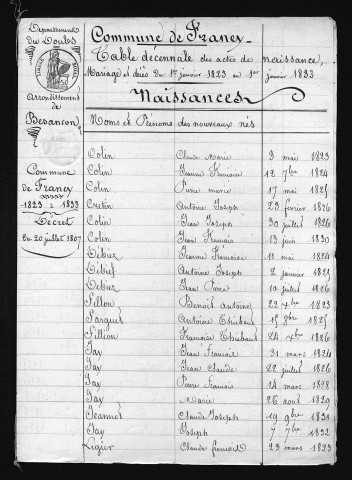 Département
du Doubs
Arrondissement
de
Besançon
Commune
de Franey
1823 à 1833
Décret
du 20 juillet 1807
Commune de Franey
Table décennale des actes de naissance,
Mariage et décès du 1er janvier 1823 au 1er janvier 1833
Naissances
Noms et Prénoms des nouveaux nés
Colin Claude Marie 3 mai 1823
Colin Jeanne Françoise 12 7bre 1824
Colin Pierre Marie 17 mai 1825
Cretin Antoine Joseph 23 février 1826
Colin Jean Joseph 30 juillet 1826
Colin Jean François 13 juin 1830
Debiez Jeanne Françoise 11 mai 1824
Debief Antoine Joseph 2 janvier 1825
Debiez Jean Pierre 10 juillet 1826
Fillon Benoit Antoine 22 xbre 1823
Fargues Antoine Thiebaud 15 8bre 1825
Fillion Françoise Thiebaud 24 xbre 1826
Jay Jean François 31 mars 1824
Jay Jean Claude 22 juillet 1826
Jay Pierre François 14 mars 1828
Jay Marie 26 août 1829
Jeannot Claude Joseph 19 9bre 1831
Jay Joseph 7 7bre 1832
Ligier Claude François 23 mars 1823